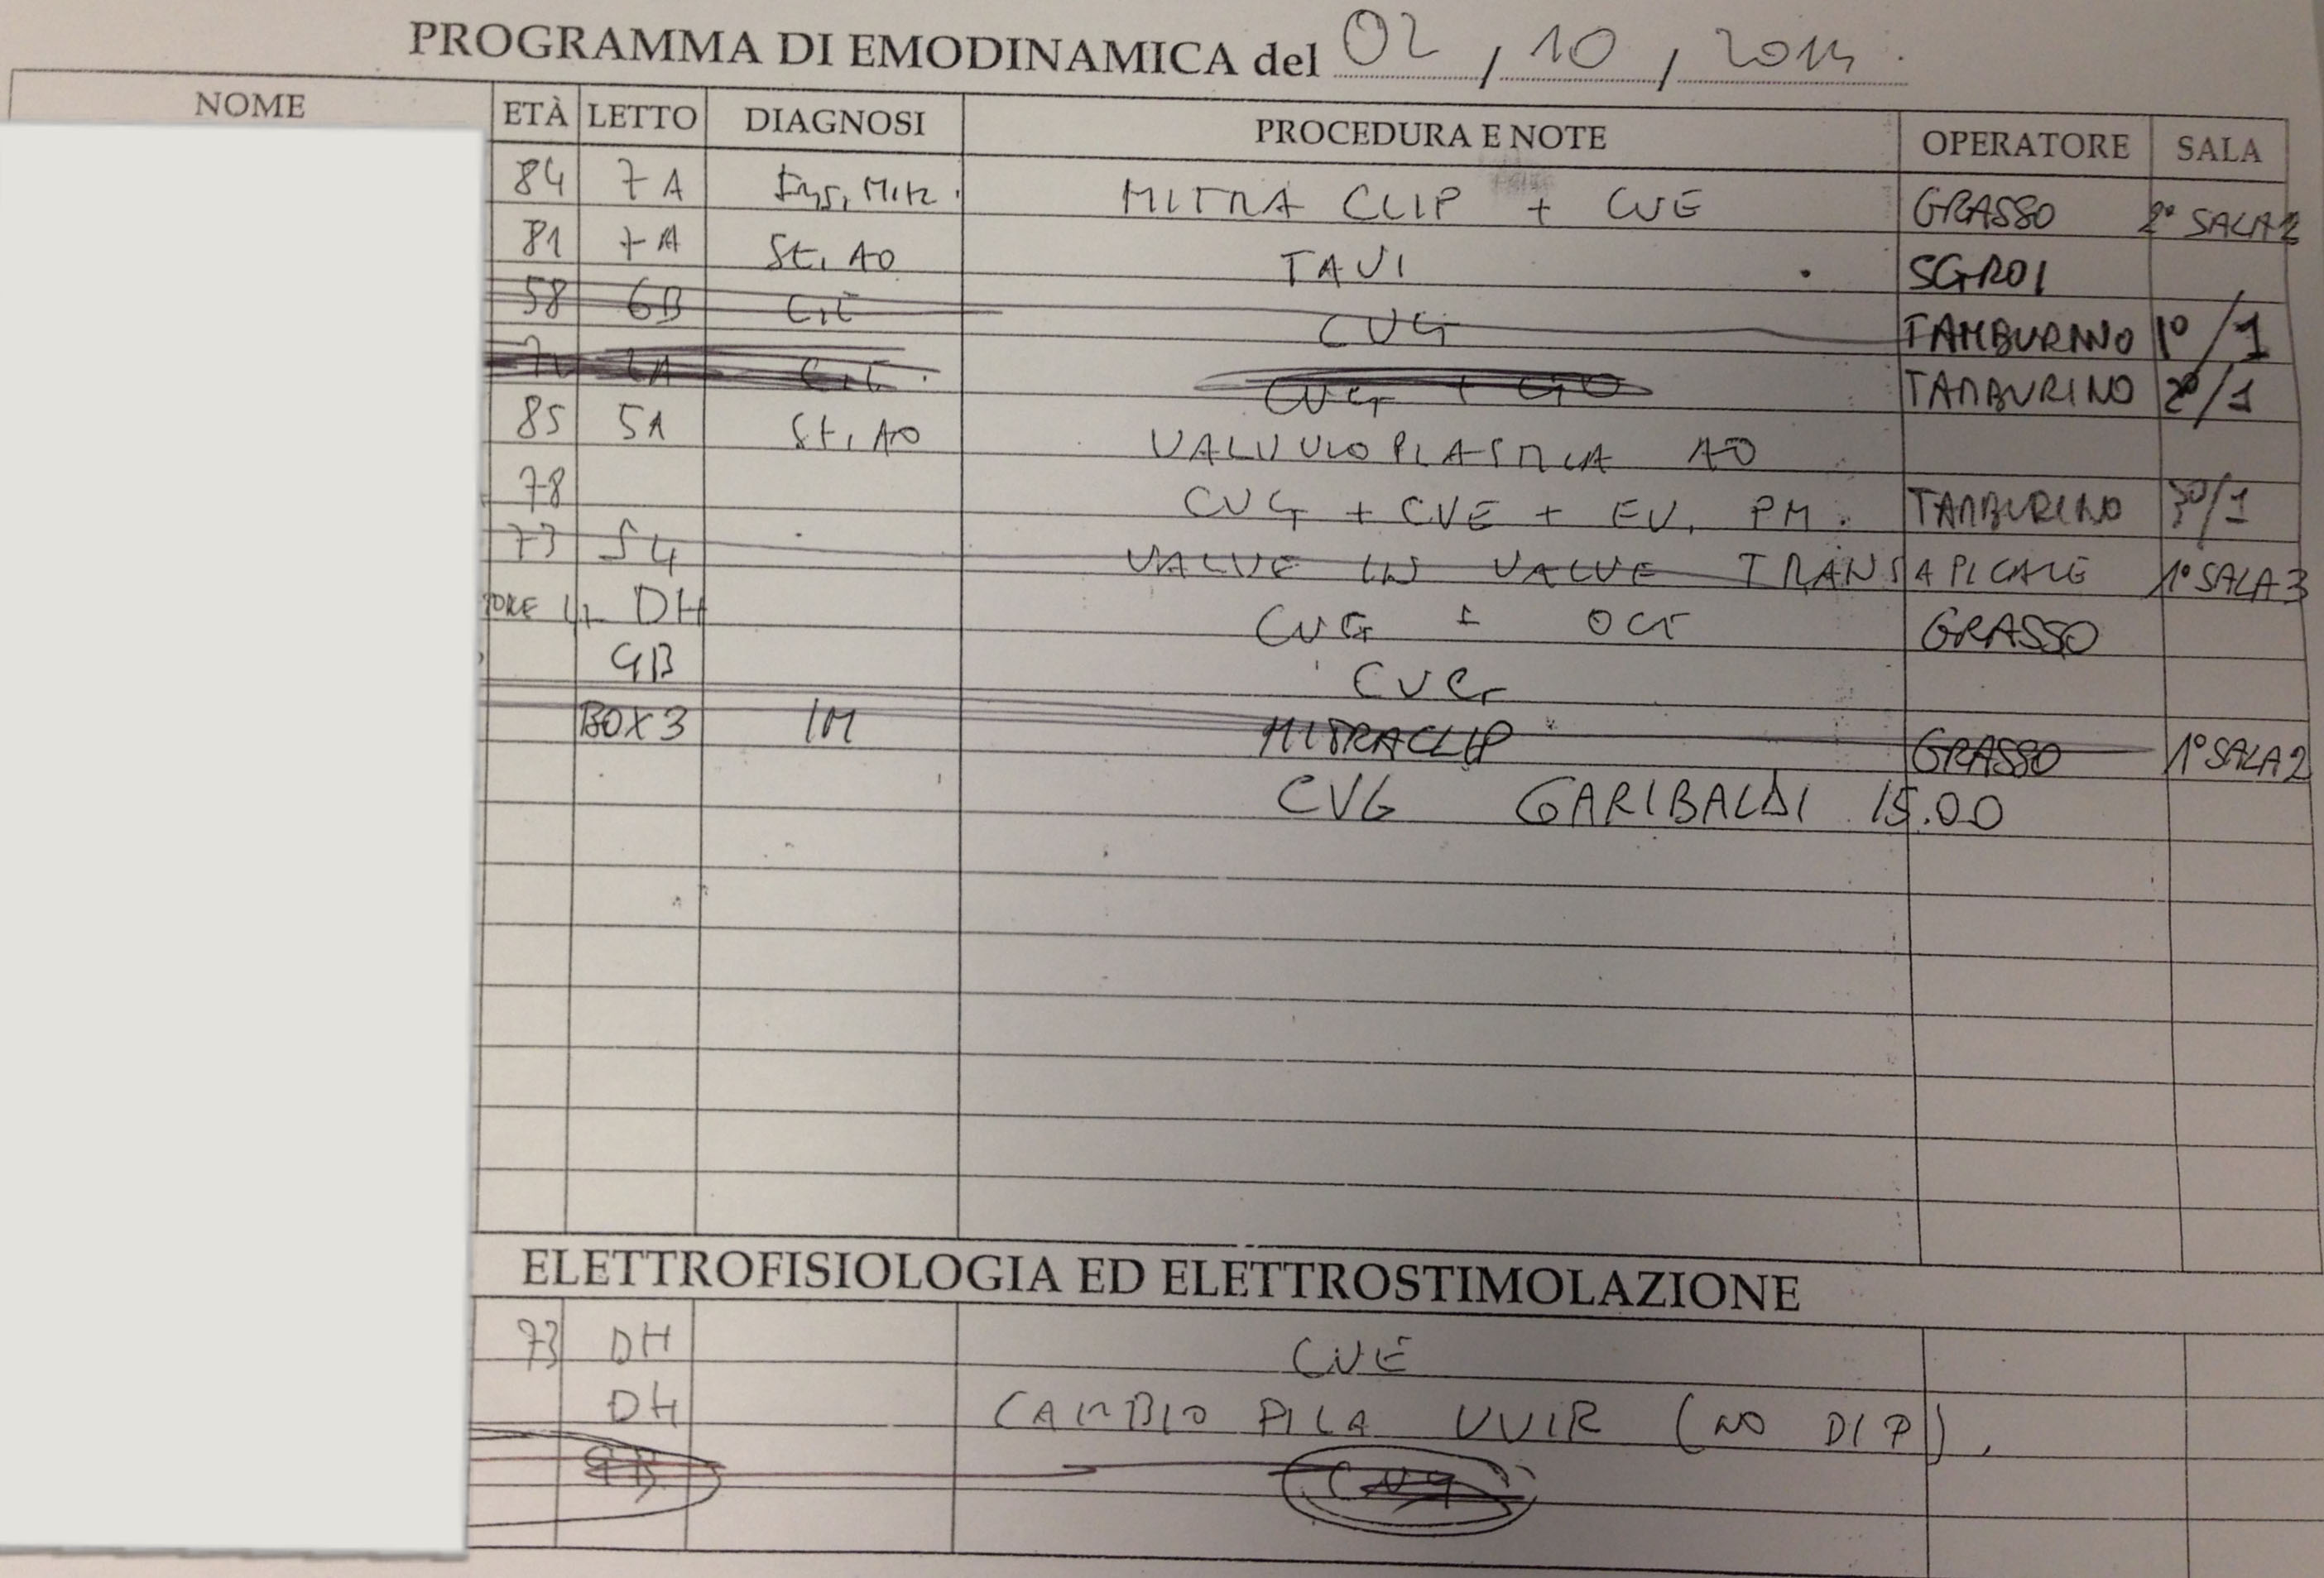 PROGRAMMA DI EMODINAMICA del 02/10/2014
NOME ETÀ LETTO DIAGNOSI PROCEDURA E NOTE OPERATORE SALA
84 7A MITRA CLIP + CVE GRASSO 2° SALA 2
81 7A St. AO TAVI SGROI
58 6B CVG TAMBURINO 1°/1
TAMBURINO 2°/1
85 5A St. AO VALVULOPLASTICA AO
78 CVG + CVE + EV. PM. TAMBURINO 3°/1
73 VALVE IN VALVE TRANSAPICALE 1° SALA 3
DH CVG ± OCT GRASSO
CVG
BOX 3 IM MITRACLIP GRASSO 1° SALA 2
CVG GARIBALDI 15.00
ELETTROFISIOLOGIA ED ELETTROSTIMOLAZIONE
73 DH CVE
DH CAMBIO PILA VVIR (NO DIP).
CVG